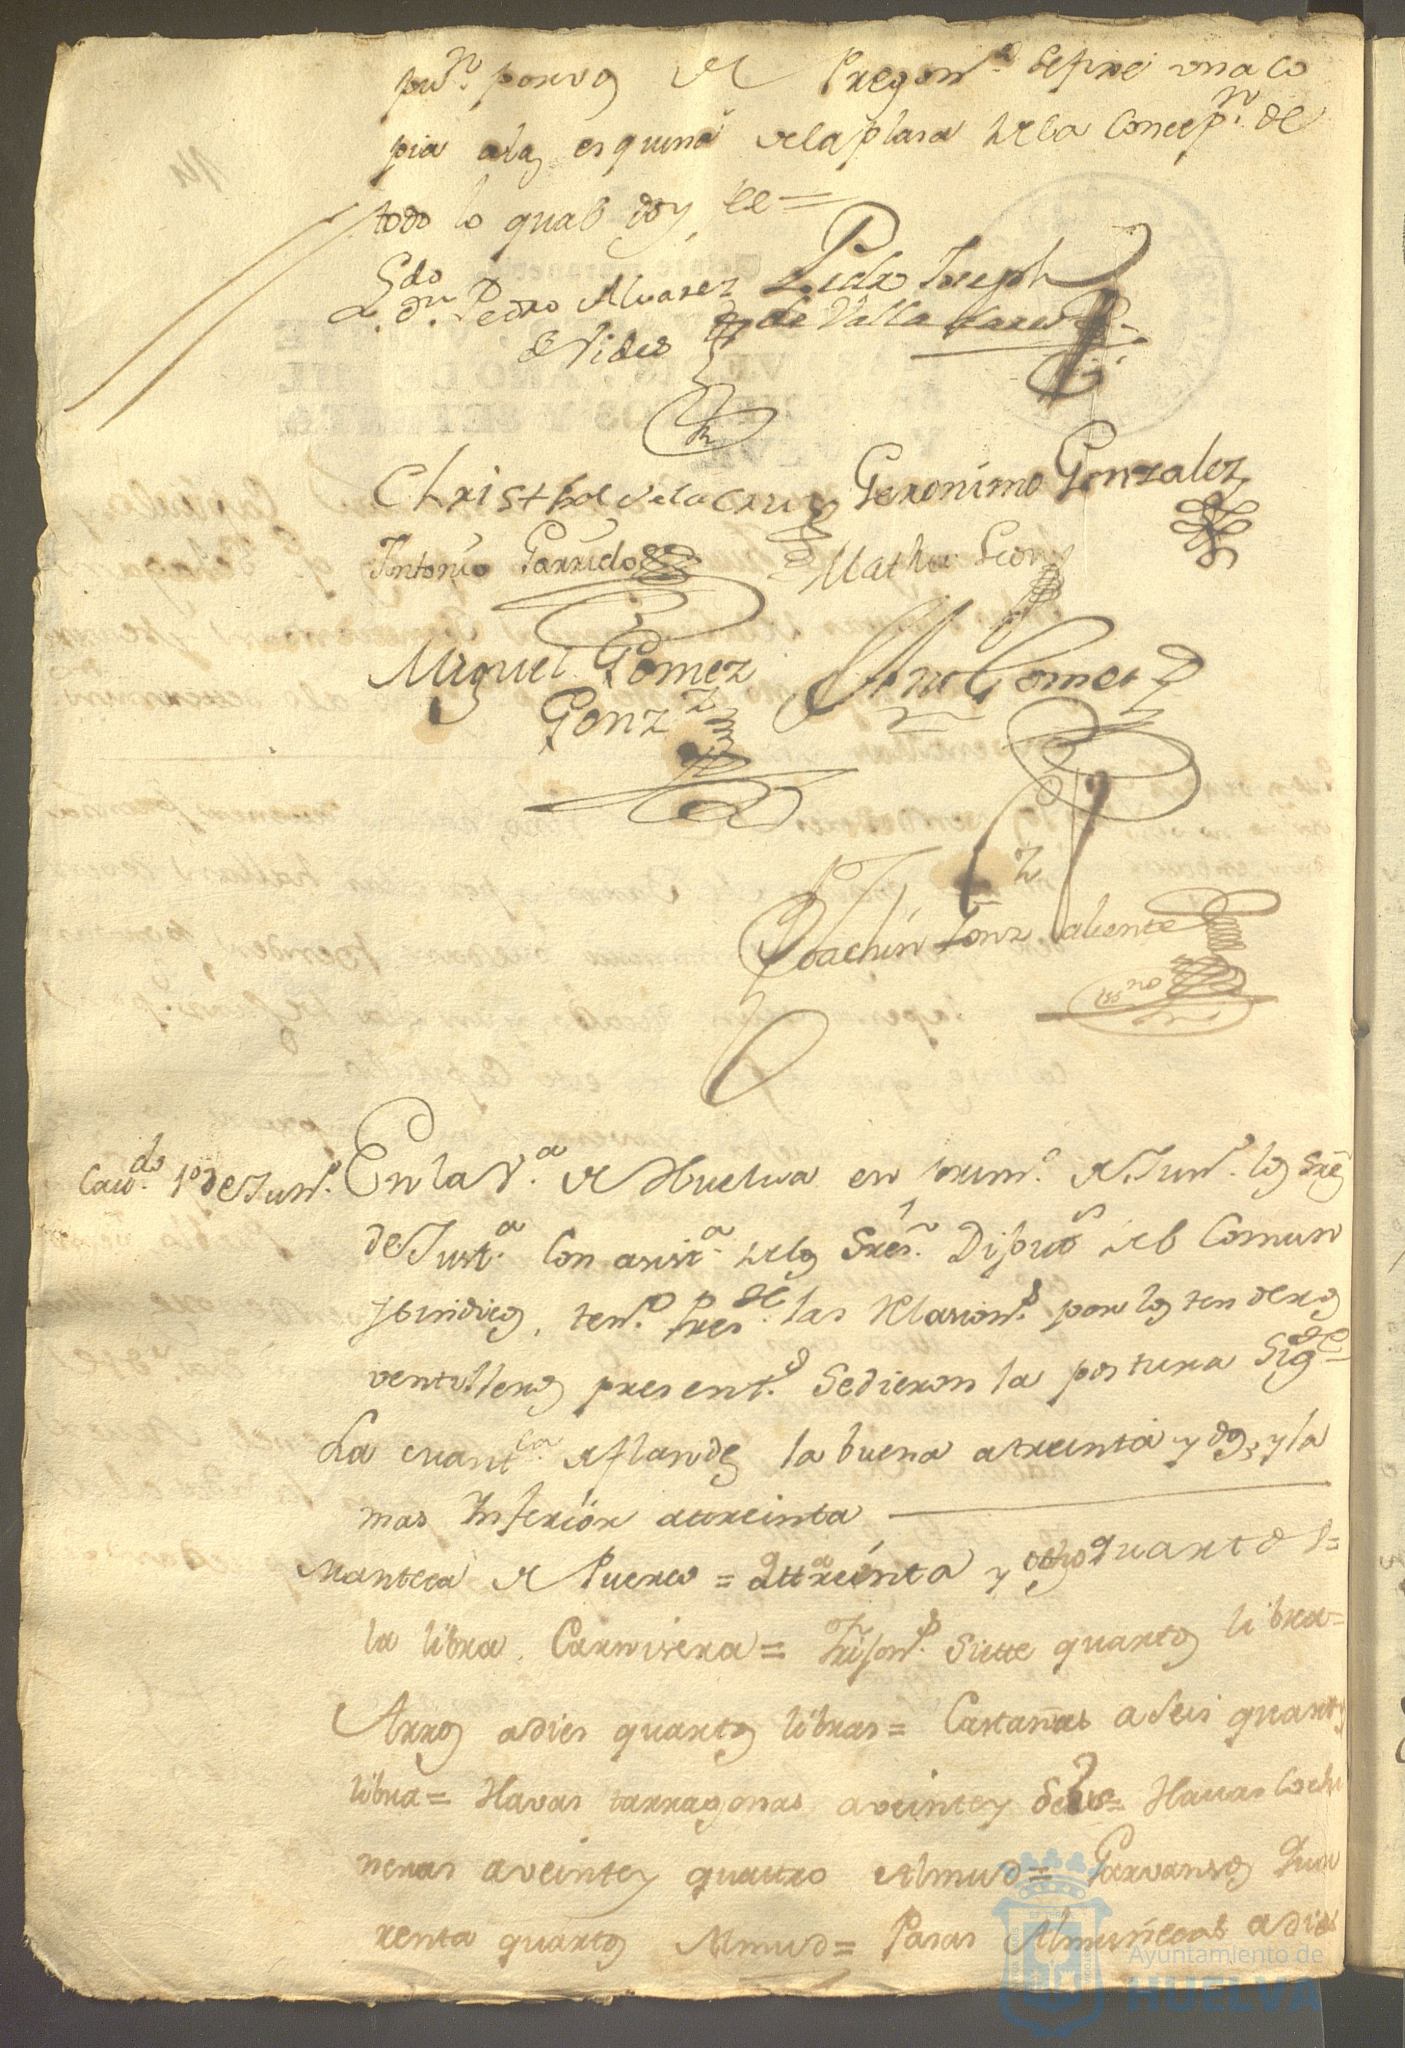 pu.n por vos de Pregon.o se fixe una co
pia a las esquinas de la plasa de la Concep.n de
todo lo qual doy fee =
Lzdo dn. Pedro Alvarez
de Vides
Pedro Joseph
de Valladares
Christobal de la Cruz
Geronimo Gonzalez
Antonio Garrido
Matheo Leon
Miguel Gomez
Gonz.z
Anto Gomez
Joachin Gonz.z Valiente
ess.no
Cav.do 1o de Jun.o
En la V.a de Huelva en prim.o de Jun.o los Sres
de Just.a Con asist.a de los Sres. Diput.s del Comun
y Sindico, ten.do pres.te las Relasion.s por los tenderos
ventilleros present.s se dieron la postura Sig.te
La cuant.ca de flandes la buena a treinta y dos, y la
mas Inferior a treinta
Manteca de Puerco = a treinta y ocho quartos =
la libra Carnisera = Frison.s Siette quartos libra =
Arros a dies quartos libras = Castañas a seis quartos
libra = Havas tarragonas a veinte y seis = Havas Cochi
neras a veinte y quatro Almud = Garvansos Qua
renta quartos Almud = Pasas Almuñecas a dies
Ayuntamiento de
HUELVA